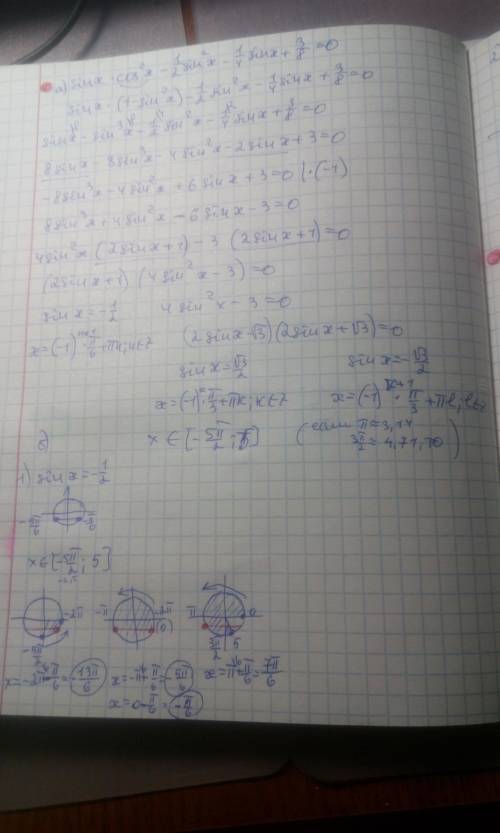 а) sinx · cos²x − 1/2 sin²x − 1/4 sinx + 3/8 = 0
sinx · (1 − sin²x) − 1/2 sin²x − 1/4 sinx + 3/8 = 0
sinx − sin³x − 1/2 sin²x − 1/4 sinx + 3/8 = 0
8sinx − 8sin³x − 4sin²x − 2sinx + 3 = 0
−8sin³x − 4sin²x + 6sinx + 3 = 0 | · (−1)
8sin³x + 4sin²x − 6sinx − 3 = 0
4sin²x (2sinx + 1) − 3 (2sinx + 1) = 0
(2sinx + 1) (4sin²x − 3) = 0
sinx = −1/2 4sin²x − 3 = 0
x = (−1)ⁿ⁺¹ · π/6 + πn; n∈Z (2sinx − √3)(2sinx + √3) = 0
sinx = √3/2 sinx = −√3/2
x = (−1)ᵏ · π/3 + πk; k∈Z x = (−1)ˡ⁺¹ · π/3 + πl; l∈Z
б) x ∈ [−5π/2; 5] (если π ≈ 3,14
3π/2 ≈ 4,71, то)
1) sinx = −1/2
−5π/6 −π/6
x ∈ [−5π/2; 5]
−2π −π −2π (0) π 0
−5π/2 3π/2 5
x = −2π − π/6 = −13π/6 x = −π + π/6 = −5π/6 x = π + π/6 = 7π/6
x = 0 − π/6 = −π/6